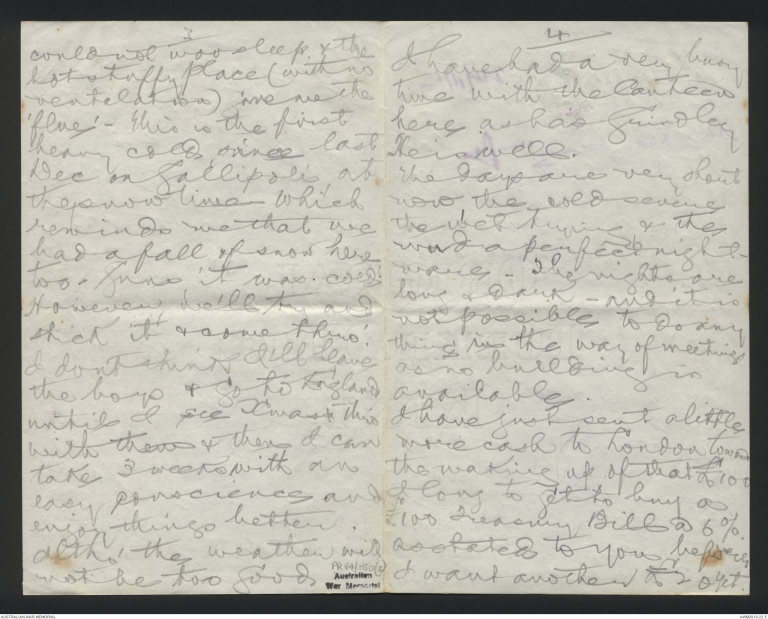 3
could not was sleep & the
hot stuffy place (with no
ventilation) gave me the
'flue' - this is the first
heavy cold since last
Dec on Gallipoli at
the snow time - Which
reminds me that we
had a fall of snow here
too - Guns it was cold!
However, we'll try and
stick it & come thro'.
I dont think I'll leave
the boys & go to England
until I see Xmas thro
with them & then I can
take 3 weeks with an
easy conscience and
enjoy things better.
Altho' the weather will
not be too good
PR89/150(3)
Australian
War Memorial
4
I have had a very busy
time with the Canteen
here as has Grindley
He is well.
The days are very short
now the cold severe
the wet trying & the
mud a perfect night-
mare - The nights are
long & dark - and it is
not possible to do any
thing in the way of meetings
as no building is
available.
I have just sent a little
more cash to London towards
the making up of that £100
I long to get to buy a
£100 Treasury Bill @ 6%
as stated to you before
I want another £20 yet.
AUSTRALIAN WAR MEMORIAL
AWM2019.22.5